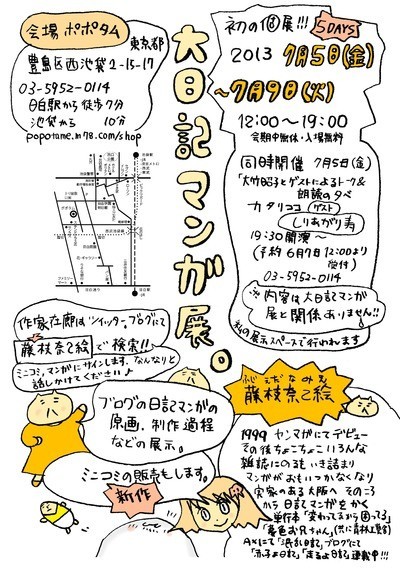 会場 ポポタム
東京都
豊島区西池袋2-15-17
03-5952-0114
目白駅から徒歩7分
池袋から 10分
popotame.m78.com/shop
大日記マンガ展。
初の個展!!! 5DAYS
2013 7月5日(金)
~7月9日(火)
12:00~19:00
会期中無休・入場無料
同時開催 7月5日(金)
「大竹昭子とゲストによるトーク&
朗読の夕べ
カタリココ ゲスト
しりあがり寿
19:30開演~
(予約 6月7日12:00より
受付)
03-5952-0114
※内容は大日記マンガ
展と関係ありません!!
私の展示スペースで行われます
作家在廊はツイッター、ブログにて
藤枝奈己絵で検索!!
ミニコミ、マンガにサインします、なんなりと
話しかけてください♪
ブログの日記マンガの
原画、制作過程
などの展示。
ミニコミの販売もします。
新作
ふじえだなみえ
藤枝奈己絵
1999 ヤンマガにてデビュー
その後ちょこちょこいろんな
雑誌にのるもいき詰まり
マンガがおもいつかなくなり
実家のある大阪へ そのころ
から日記マンガをかく
単行本「変わってるから困ってる」
「暮色お兄ちゃん」(共に青林工藝舎)
連載中!!!